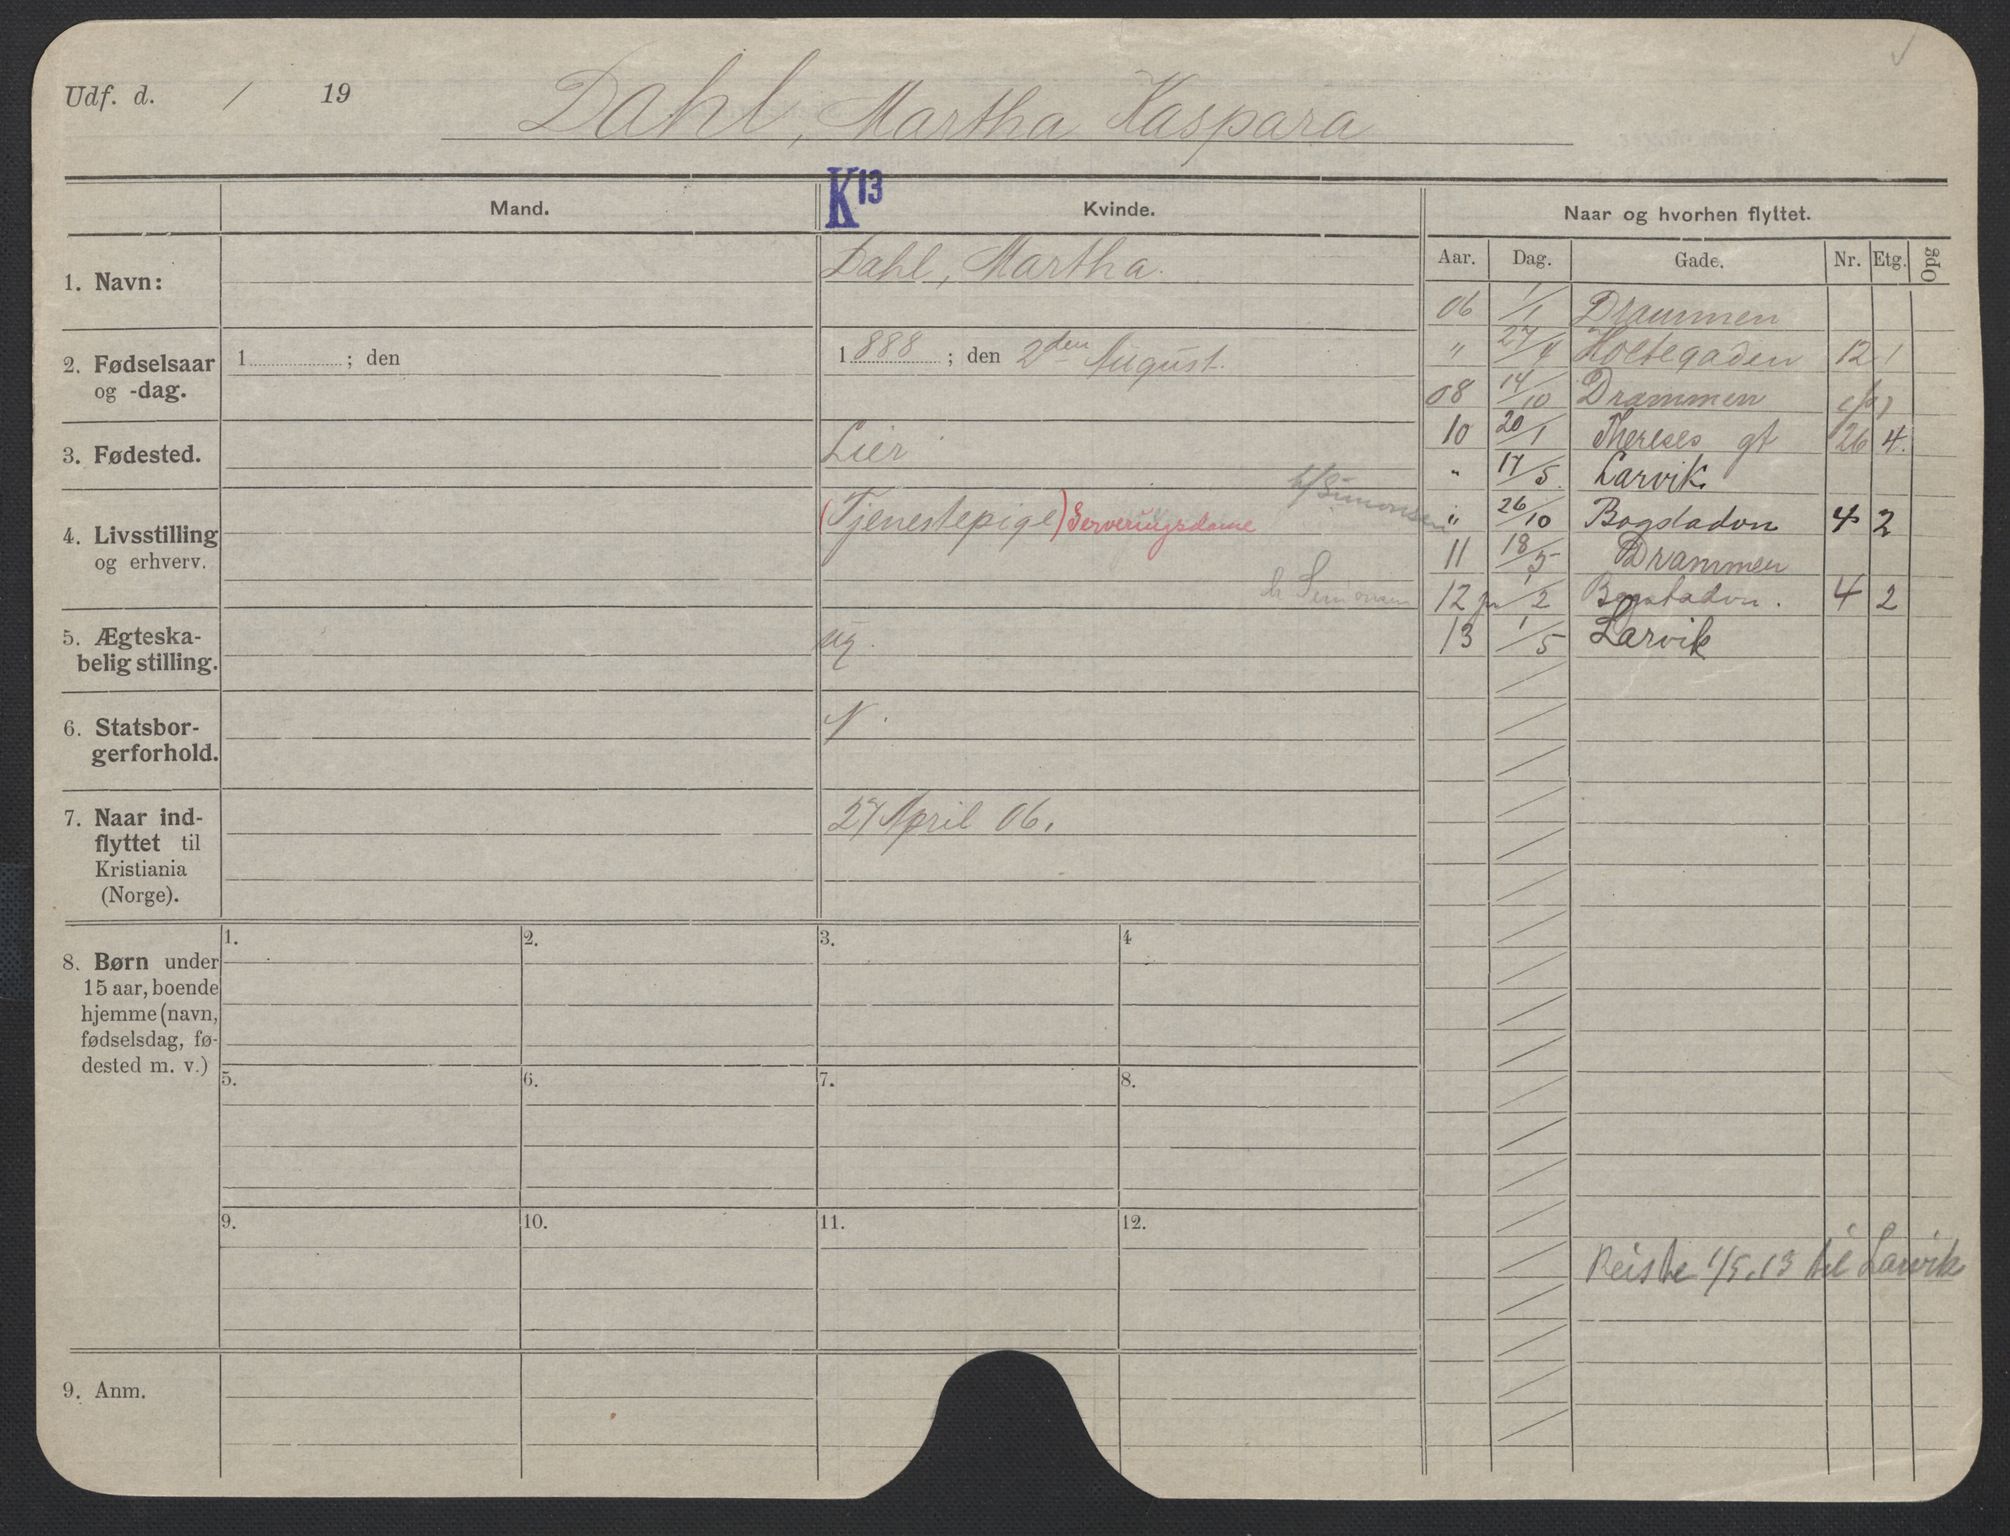 Udf. d. / 19
Dahl, Martha Kaspara
K13
Mand.
Kvinde.
Naar og hvorhen flyttet.
Aar. Dag. Gade. Nr. Etg. Opg
1. Navn:
Dahl, Martha.
2. Fødselsaar
og -dag.
1 ; den
1888 ; den 2den August.
3. Fødested.
Lier
4. Livsstilling
og erhverv.
(Tjenestepige) Serveringsdame
h/Simonsen
h Simonsen
5. Ægteska-
belig stilling.
ug.
6. Statsbor-
gerforhold.
N.
7. Naar ind-
flyttet til
Kristiania
(Norge).
27 April 06.
06 1/1 Drammen
" 27/4 Holtegaden 12 1
08 14/10 Drammen
10 20/1 Thereses gt 26 4.
" 17/5. Larvik
" 26/10 Bogstadvn 4 2
11 18/5 Drammen
12 1/2 Bogstadvn. 4 2
13 1/5 Larvik
8. Børn under
15 aar, boende
hjemme (navn,
fødselsdag, fø-
dested m. v.)
1. 2. 3. 4
5. 6. 7. 8.
9. 10. 11. 12.
Reiste 1/5.13 til Larvik
9. Anm.